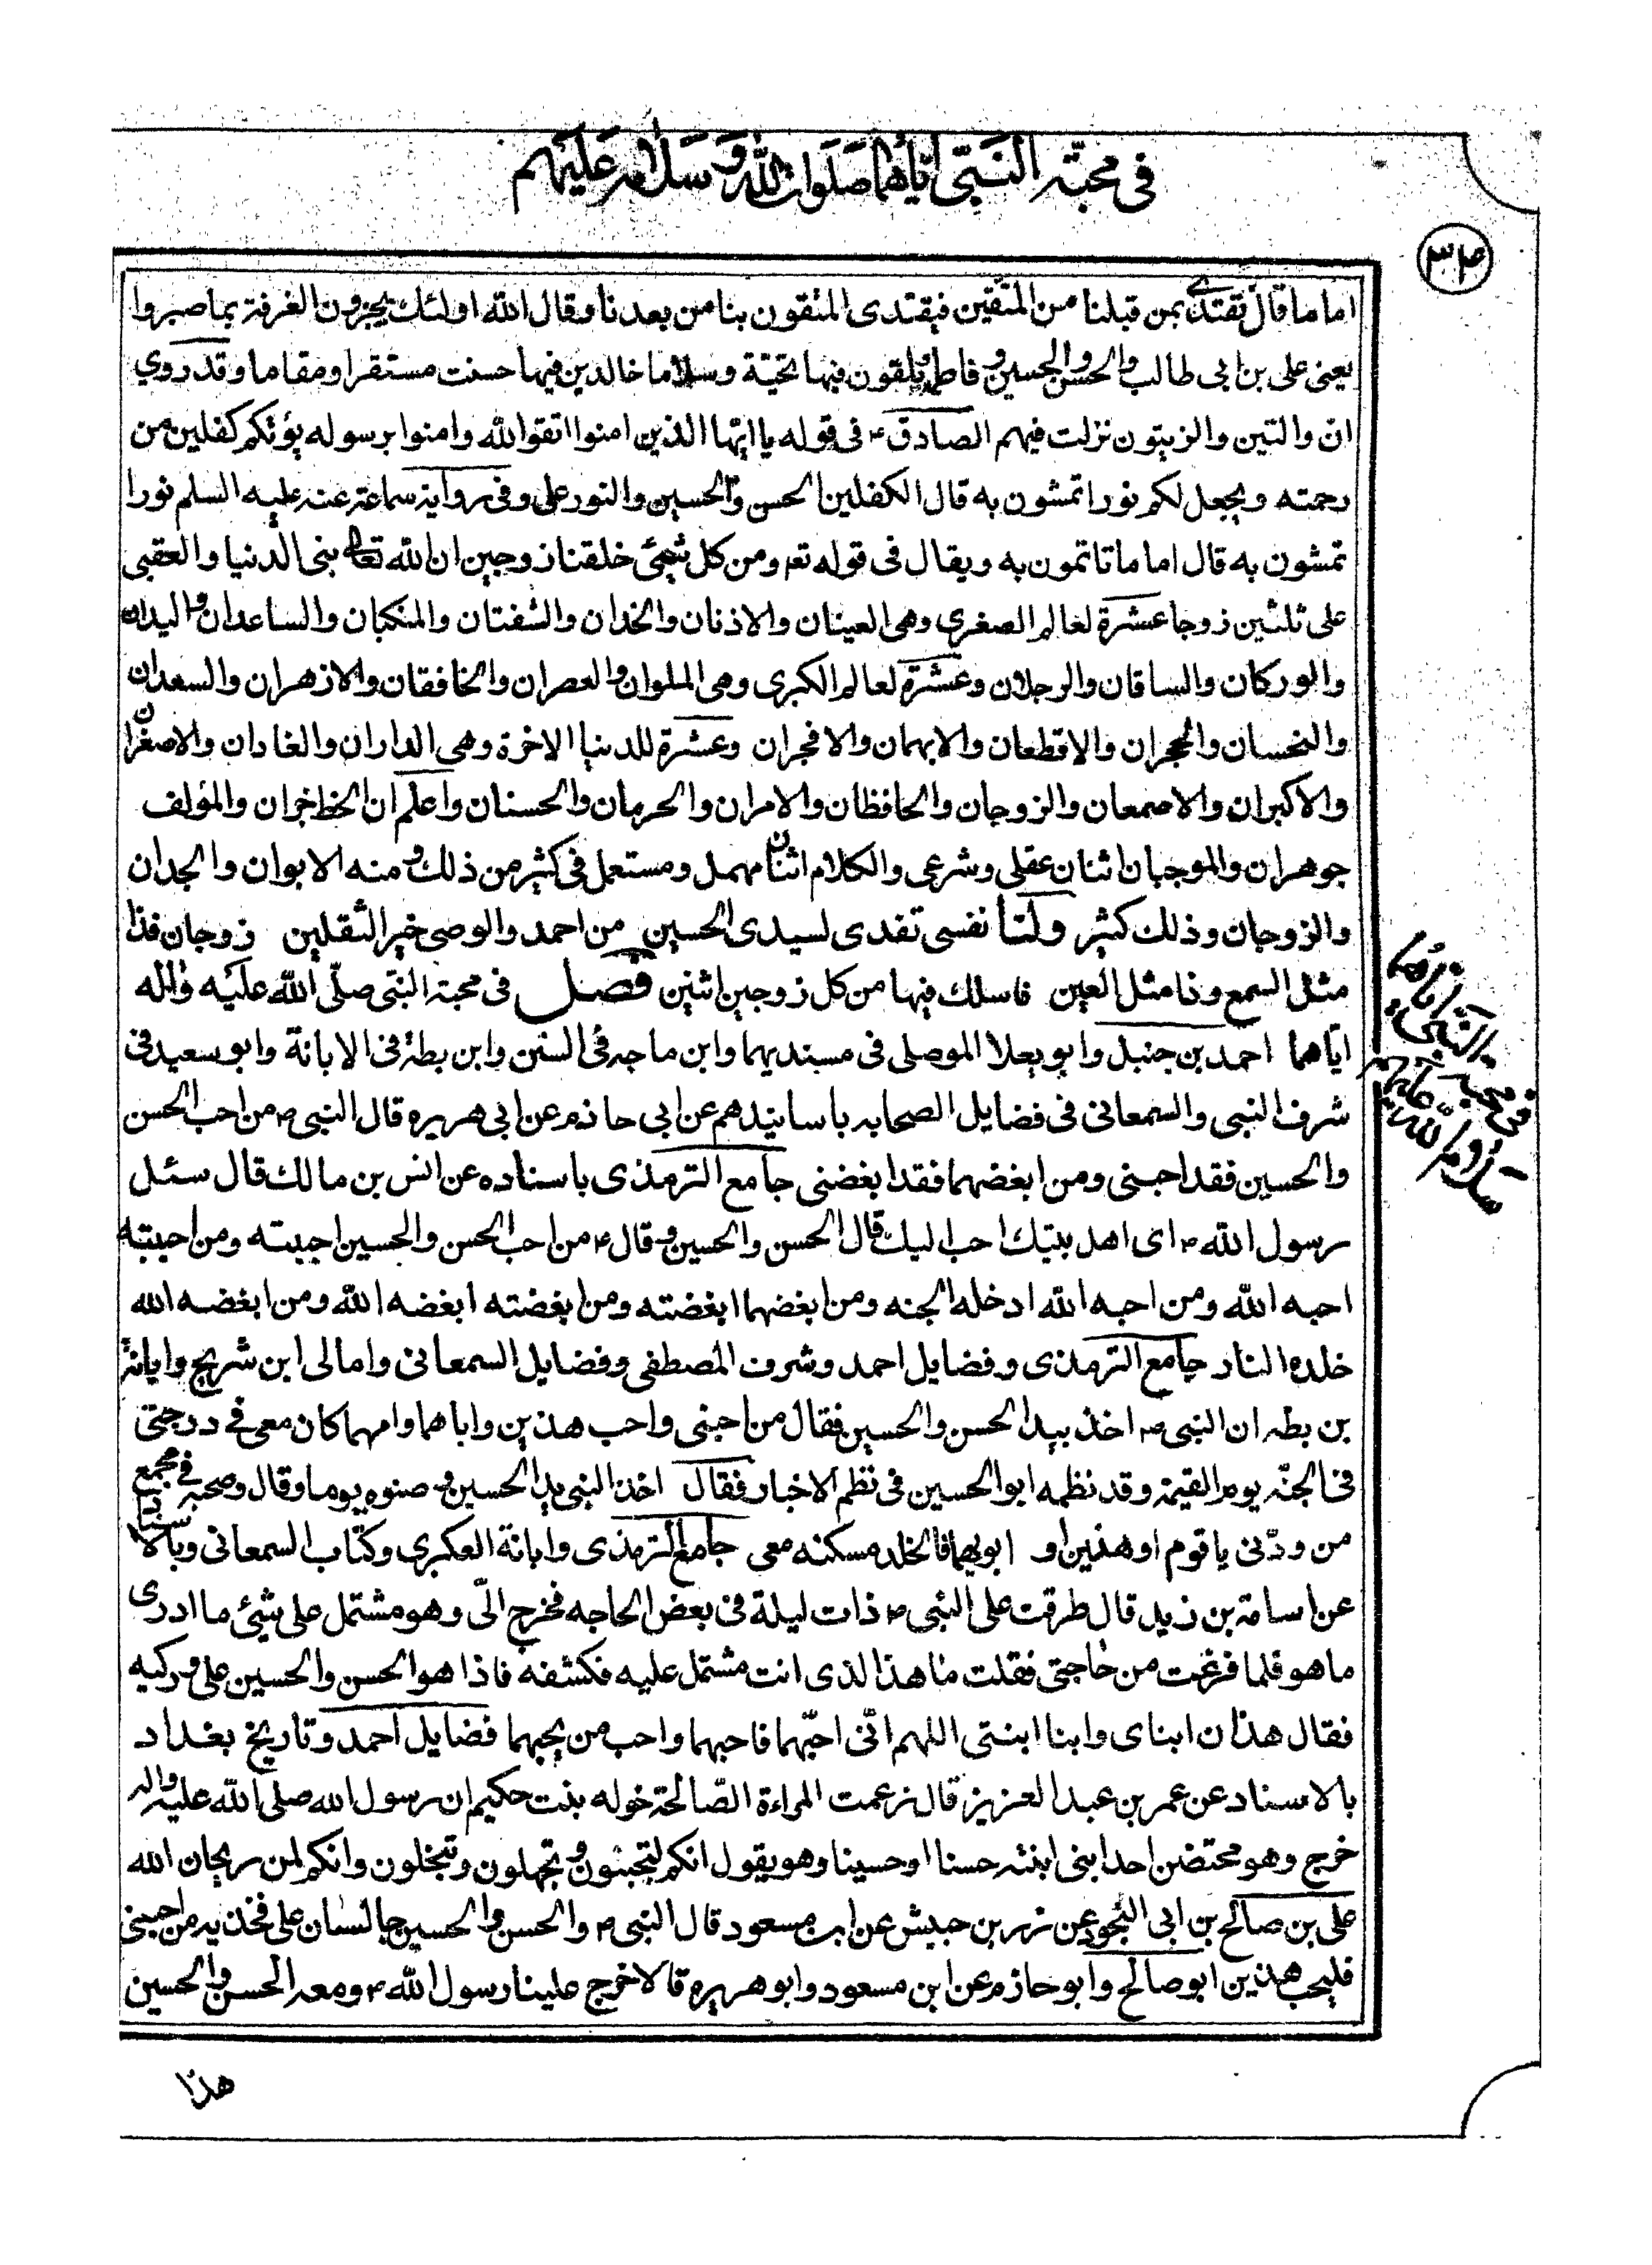 في محبة النبي اياهما صلوات الله وسلامه عليهم
٣٤
اماما قال نقتدى بمن قبلنا من المتقين فيقتدى المتقون بنا من بعدنا وقال الله اولئك يجزون الغرفة بما صبروا
يعنى على بن ابى طالب والحسن والحسين و فاطمة ويلقون فيها تحيّة وسلاما خالدين فيها حسنت مستقرا ومقاما وقد روي
ان والتين والزيتون نزلت فيهم الصادق ع فى قوله يا ايّها الذين امنوا اتقوا الله وامنوا برسوله يؤتكم كفلين من
رحمته ويجعل لكم نورا تمشون به قال الكفلين الحسن والحسين والنور على وفى رواية سماعة عنه عليه السلم نورا
تمشون به قال اماما تاتمون به ويقال فى قوله تع ومن كل شيئ خلقنا زوجين ان الله تعالى بنى الدنيا والعقبى
على ثلثين زوجا عشرة لعالم الصغرى وهى العينان والاذنان والخدان والشفتان والمنكبان والساعدان واليدان
والوركان والساقان والرجلان وعشرة لعالم الكبرى وهى الملوان والعصران والخافقان والازهران والسعدان
والنحسان والحجران والاقطعان والابهمان والافجران وعشرة للدنيا الاخرة وهى الداران والغادان والاصغران
والاكبران والاصمعان والزوجان والحافظان والامران والحرمان والحسنان واعلم ان الخط خوان والمؤلف
جوهران والموجبان اثنان عقلى وشرعى والكلام اثنان مهمل ومستعمل فى كثير من ذلك ومنه الابوان والجدان
والزوجان وذلك كثير ولنا نفسى تفدى لسيدى الحسين من احمد والوصى خير الثقلين زوجان فذا
مثل السمع وذا مثل العين فاسلك فيها من كل زوجين اثنين فصل فى محبة النبى صلّى الله عليه واله
ايّاهما احمد بن حنبل وابو يعلا الموصلى فى مسنديهما وابن ماجه فى السنن وابن بطة فى الابانة وابو سعيد فى
شرف النبى والسمعانى فى فضايل الصحابه باسانيدهم عن ابى حازم عن ابى هريره قال النبى ص من احب الحسن
والحسين فقد احبنى ومن ابغضهما فقد ابغضنى جامع الترمذى باسناده عن انس بن مالك قال سئل
رسول الله ص اى اهل بيتك احب اليك قال الحسن والحسين وقال ع من احب الحسن والحسين احببته ومن احببته
احبه الله ومن احبه الله ادخله الجنه ومن ابغضهما ابغضته ومن ابغضته ابغضه الله ومن ابغضه الله
خلده النار جامع الترمذى وفضايل احمد وشرف المصطفى وفضايل السمعانى وامالى ابن شريح وابانة
بن بطه ان النبى ص اخذ بيد الحسن والحسين فقال من احبنى واحب هذين واباهما وامهما كان معى فى درجتى
فى الجنّه يوم القيمة وقد نظمه ابو الحسين فى نظم الاخبار فقال اخذ النبى يد الحسين و صنوه يوما وقال وصحبه فى مجمع
من ودّنى يا قوم او هذين او ابويهما فالخلد مسكنه معى جامع الترمذى وابانة العكبرى وكتاب السمعانى وبالاسناد
عن اسامة بن زيد قال طرقت على النبى ص ذات ليلة فى بعض الحاجه فخرج الىّ وهو مشتمل على شيئ ما ادرى
ما هو فلما فرغت من حاجتى فقلت ما هذا الذى انت مشتمل عليه فكشفه فاذا هو الحسن والحسين على وركيه
فقال هذان ابناى وابنا ابنتى اللهم انّى احبّهما فاحبهما واحب من يحبهما فضايل احمد وتاريخ بغداد
بالاسناد عن عمر بن عبد العزيز قال زعمت المراءة الصّالحة خوله بنت حكيم ان رسول الله صلى الله عليه واله
خرج وهو محتضن احد ابنى ابنته حسنا او حسينا وهو يقول انكم لتجبنون وتجهلون وتبخلون وانكم لمن ريحان الله
على بن صالح بن ابى النجود عن زر بن حبيش عن ابن مسعود قال النبى ص والحسن والحسين جالسان على فخذيه من احبنى
فليحب هذين ابو صالح وابو حازم عن ابن مسعود وابو هريره قالا خرج علينا رسول الله ص ومعه الحسن والحسين
فى محبة النبى اياهما
سلام الله عليهم
هذا